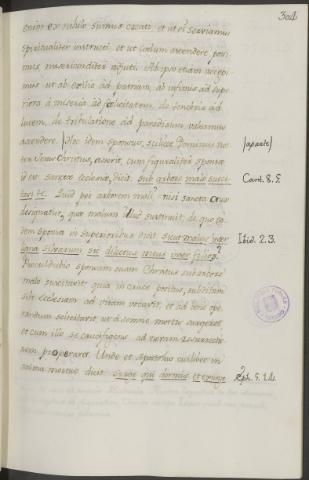 304
enim ex nihilo sumus creati, et ut ei serviamus
spiritualiter instructi, et ut coelum ascendere possimus
misericorditer adjuti. Ab ipso etiam accepimus
ut ab exilio ad patriam, ab infimis ad superiora,
a miseria ad felicitatem, de tenebris ad
lucem, de tribulatione ad paradisum valeamus
ascendere. Hoc idem sponsus, scilicet Dominus noster
Jesus Christus, asserit, cum figuraliter sponsae
id est sanctae ecclesiae, dicit: sub arbore malo suscitavi
te. Quid per arborem mali nisi sancta crux
designatur, quae malum illud sustinuit, de quo eadem
sponsa in superioribus dicit: sicut malus inter
ligna silvarum sic dilectus meus inter filios?
Procul dubio sponsam suam Christus sub arbore
malo suscitavit, quia in cruce positus, subditam
sibi ecclesiam ad vitam vocavit, et ad bene operandum
solicitavit, ut a somno mortis surgeret
et cum illo se crucifigens ad veram resurrectionem
properaret. Unde et Apostolus cuilibet in
anima mortuo dicit: surge qui dormis et exurge
(aparte)
Cant. 8. 5
Ibid. 2. 3.
Eph. 5. 14.